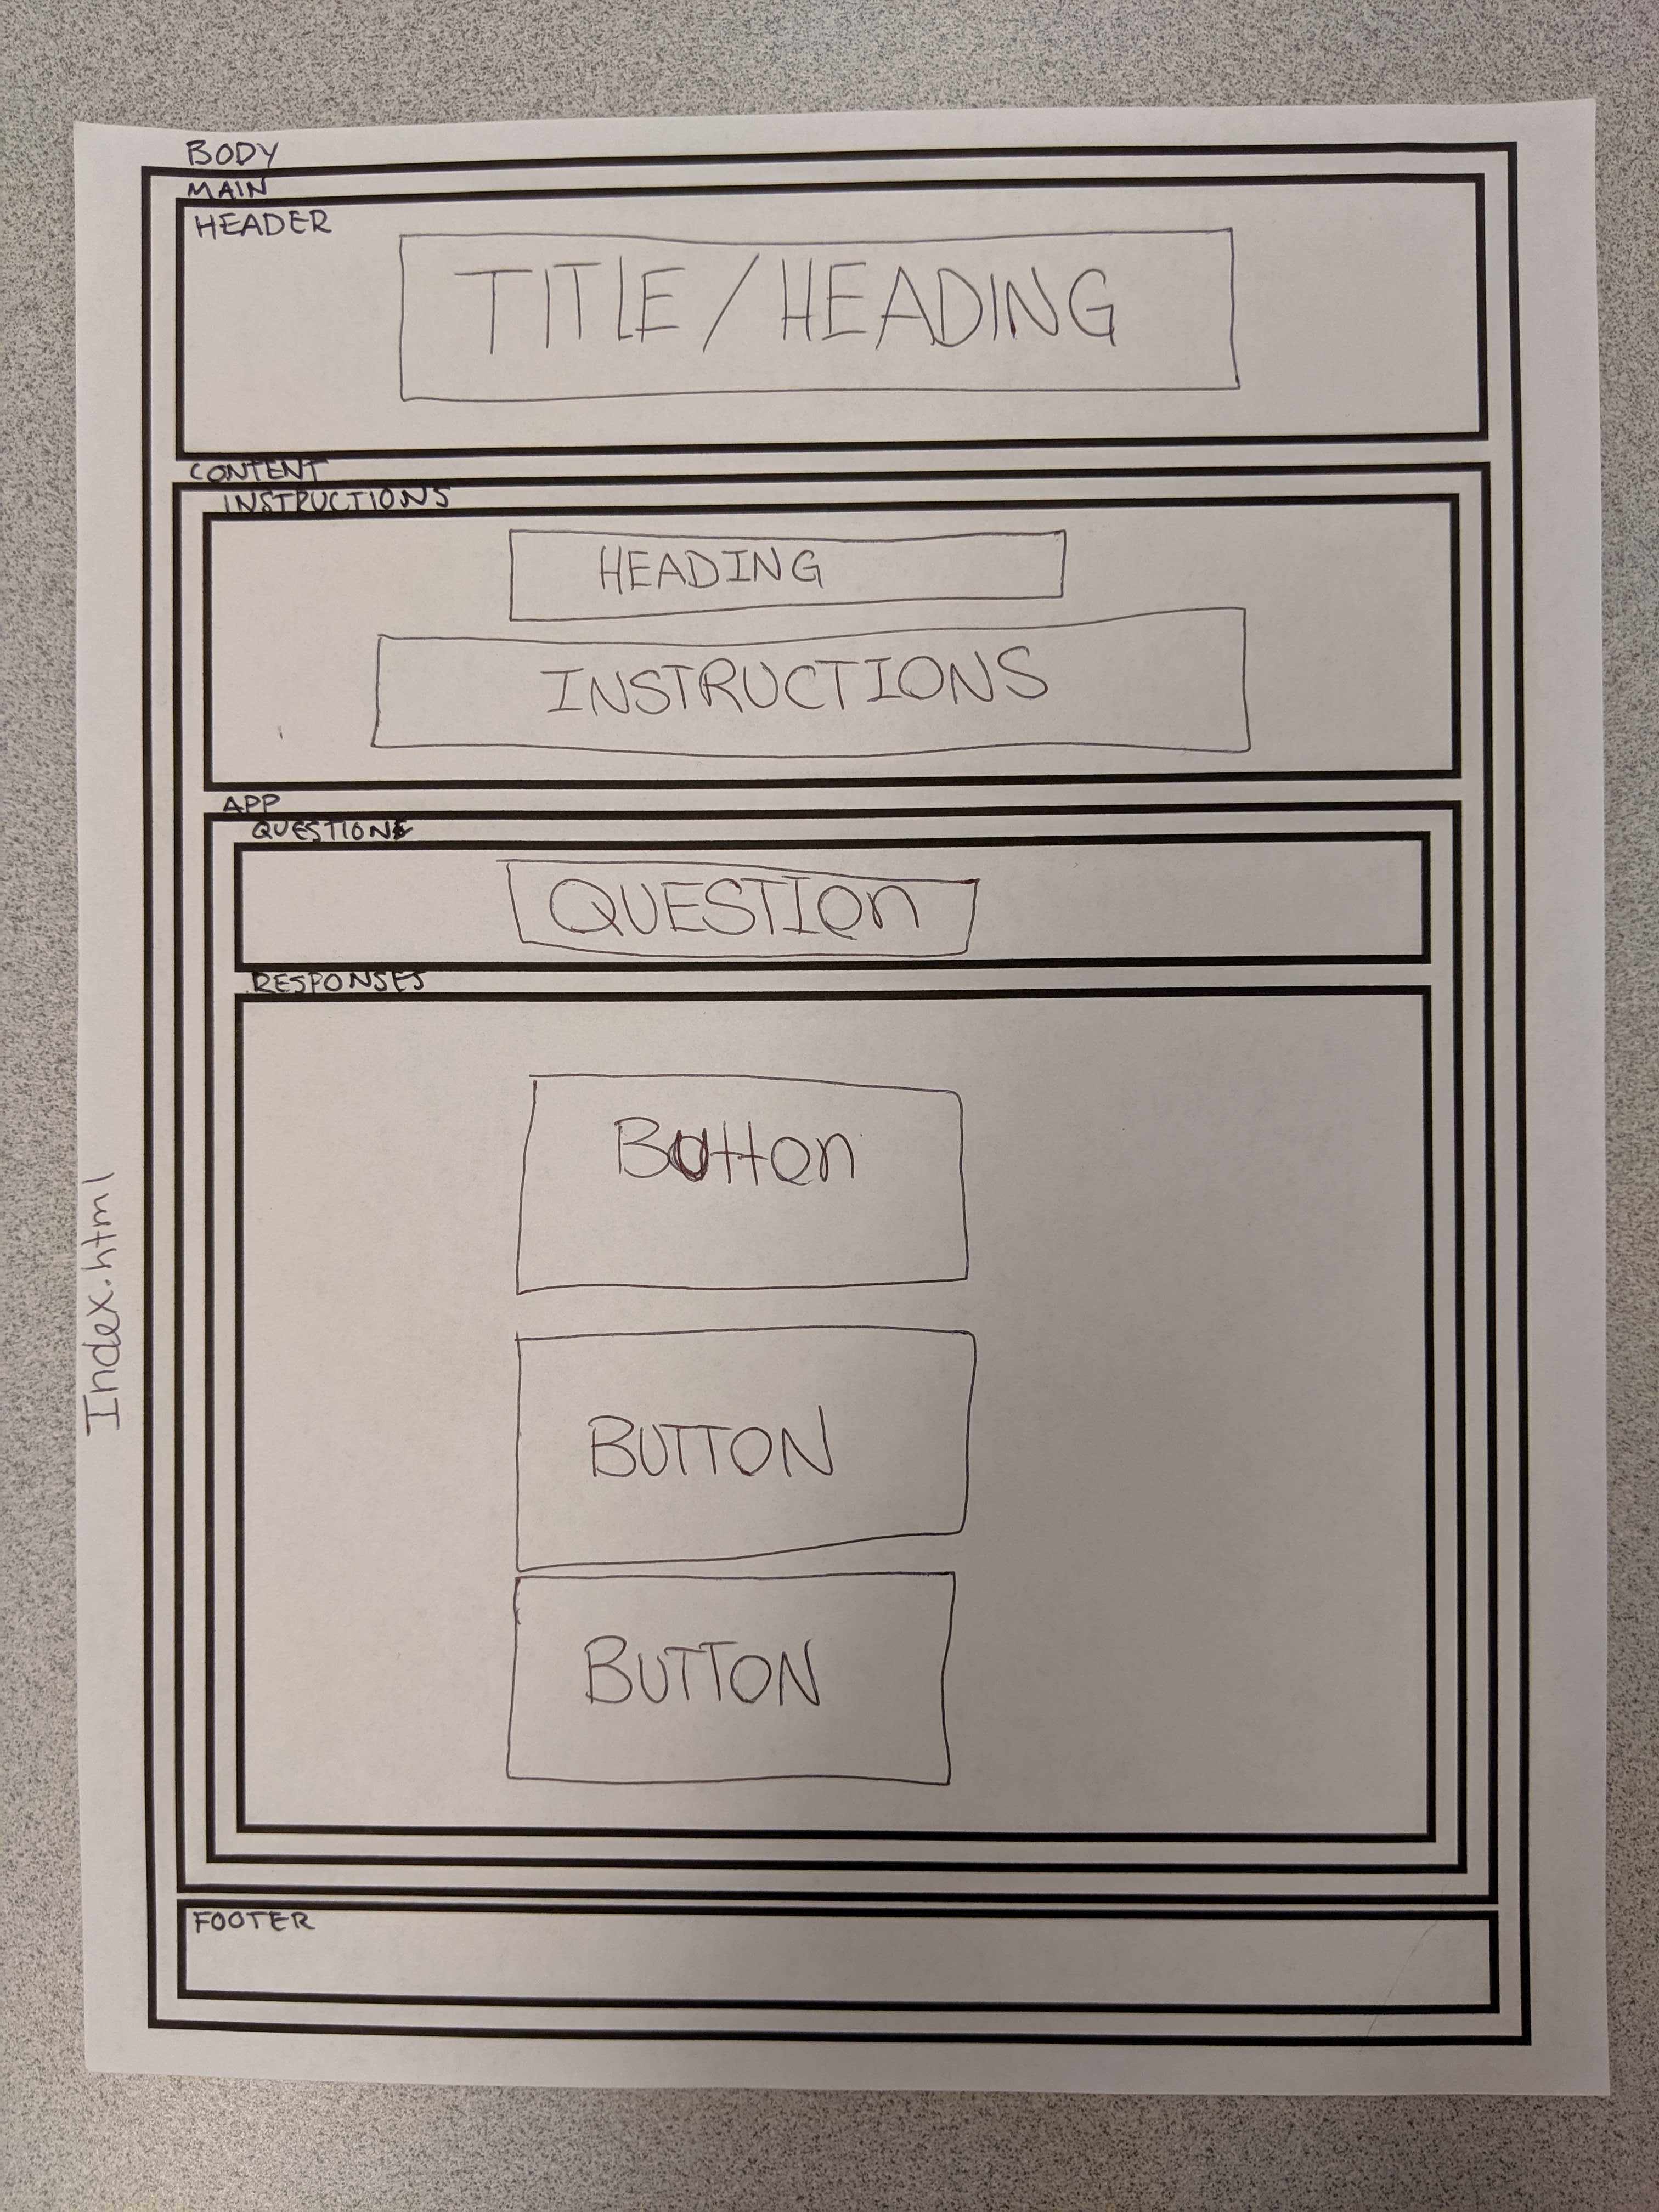 BODY
MAIN
HEADER
TITLE / HEADING
CONTENT
INSTRUCTIONS
HEADING
INSTRUCTIONS
APP
QUESTION
QUESTIOn
RESPONSES
Button
BUTTON
BUTTON
FOOTER
Index.html